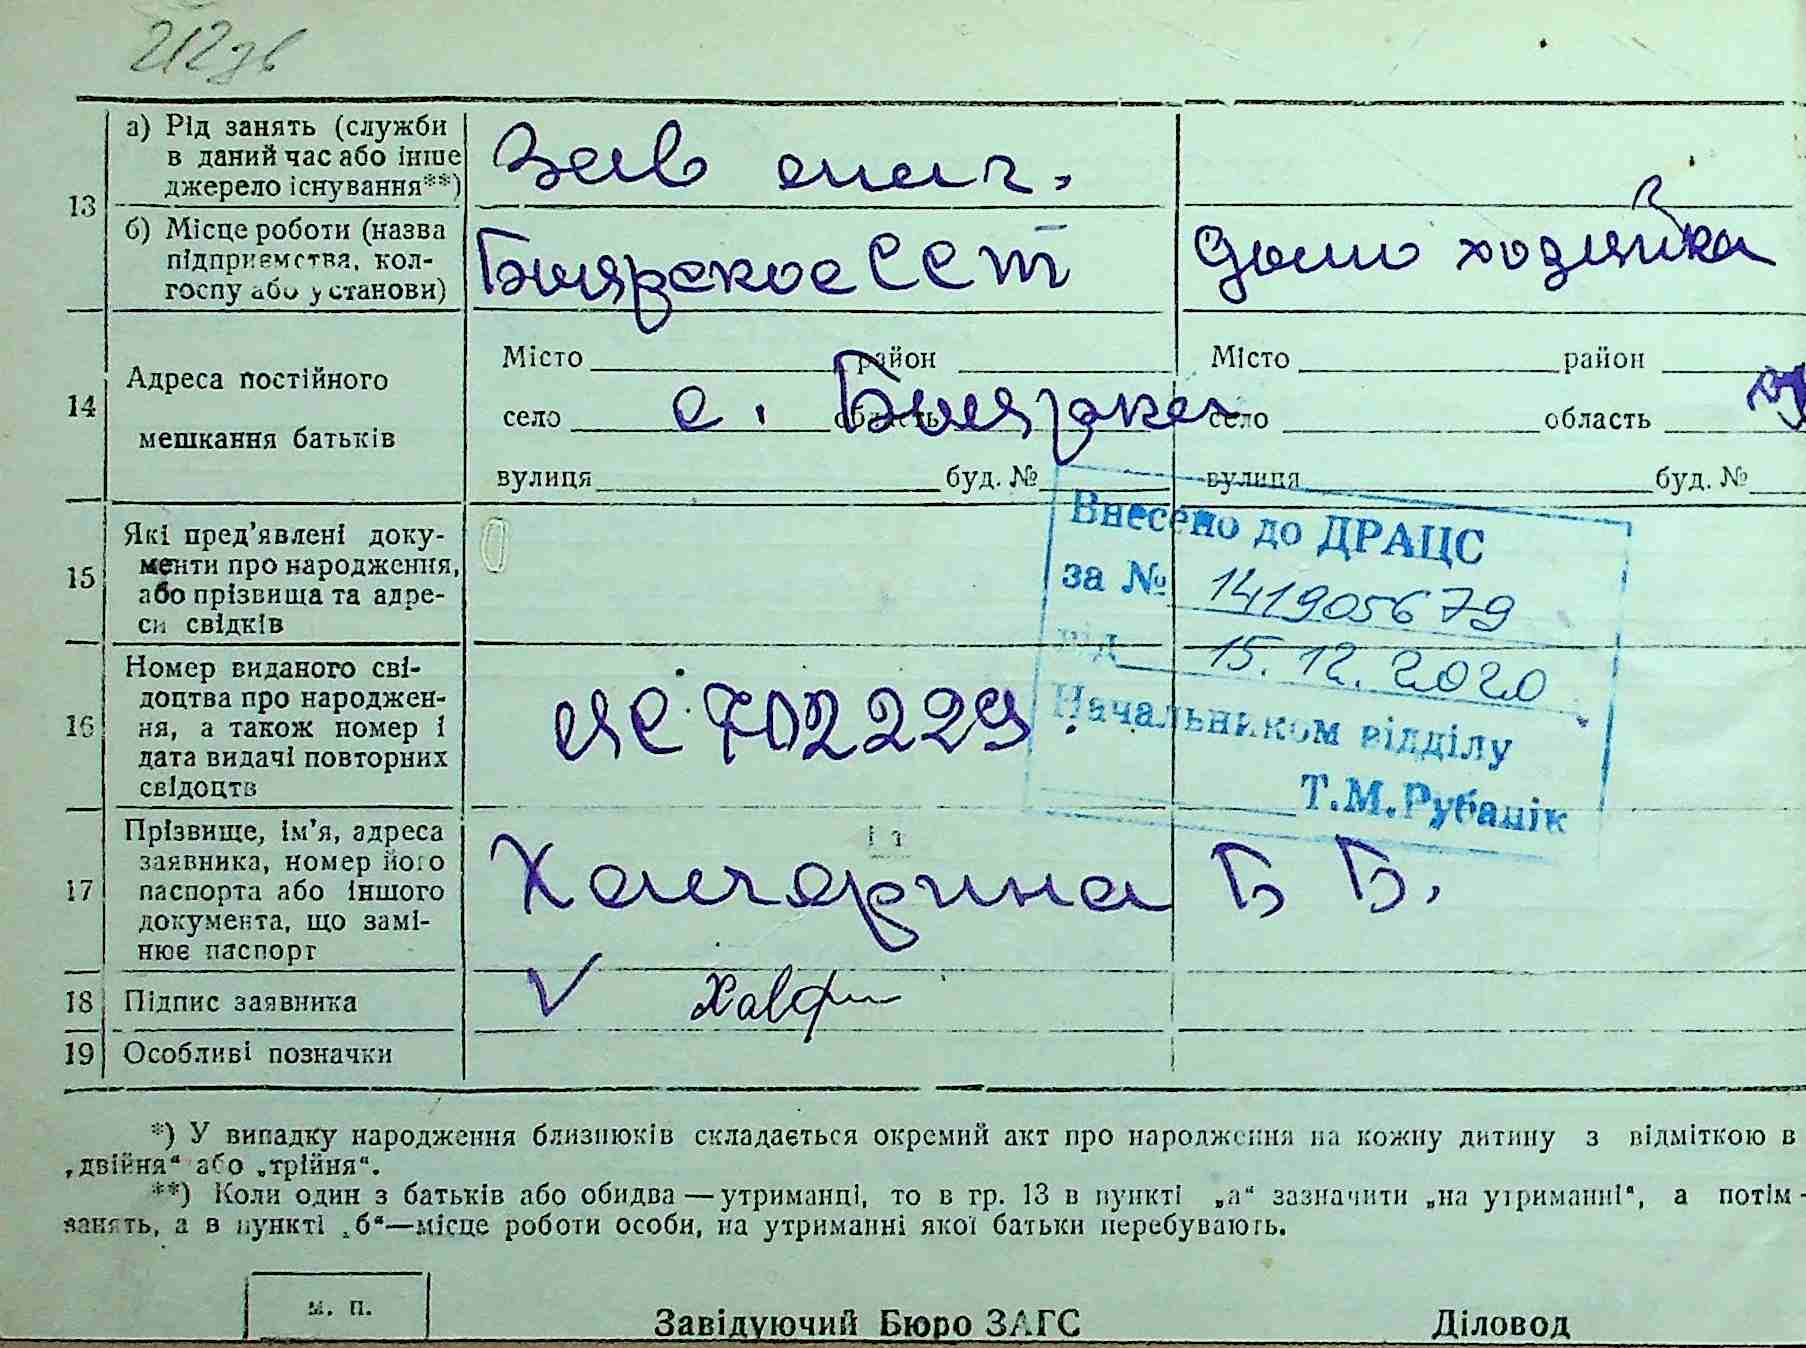 212 дв
13
а) Рід занять (служби
в даний час або інше
джерело існування**)
Зав
б) Місце роботи (назва
підприємства, кол-
госпу або установи)
Боярское ССТ
Домохозяйка
14
Адреса постійного
мешкання батьків
Місто район
село область
вулиця буд. №
с. Боярка
Місто район
село область
вулиця буд. №
15
Які пред’явлені доку-
менти про народження,
або прізвища та адре-
си свідків
Внесено до ДРАЦС
за № 141905679
від 15.12.2020
Начальником відділу
Т.М.Рубанік
16
Номер виданого сві-
доцтва про народжен-
ня, а також номер і
дата видачі повторних
свідоцтв
ЯС 702229
17
Прізвище, ім’я, адреса
заявника, номер його
паспорта або іншого
документа, що замі-
нює паспорт
Б Б.
18
Підпис заявника
19
Особливі позначки
*) У випадку народження близнюків складається окремий акт про народження на кожну дитину з відміткою в
„двійня“ або „трійня“.
**) Коли один з батьків або обидва — утриманці, то в гр. 13 в пункті „а“ зазначити „на утриманні“, а потім -
занять, а в пункті „б“—місце роботи особи, на утриманні якої батьки перебувають.
м. п.
Завідуючий Бюро ЗАГС
Діловод